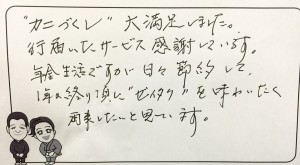 "カニづくし" 大満足しました。
行届いたサービス感謝しています。
年金生活ですが日々節約して、
1年の終り頃に"ゼイタク"を味わいたく
再来したいと思ています。